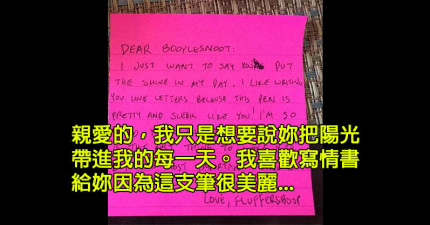 DEAR BOOPLESNOOT:
I JUST WANT TO SAY YOU PUT
THE SHINE IN MY DAY. I LIKE WRITING
YOU LOVE LETTERS BECAUSE THIS PEN IS
PRETTY AND SLEEK LIKE YOU! I'M SO
親愛的，我只是想要說妳把陽光
帶進我的每一天。我喜歡寫情書
給妳因為這支筆很美麗...
LOVE, FLUFFERSBOOP